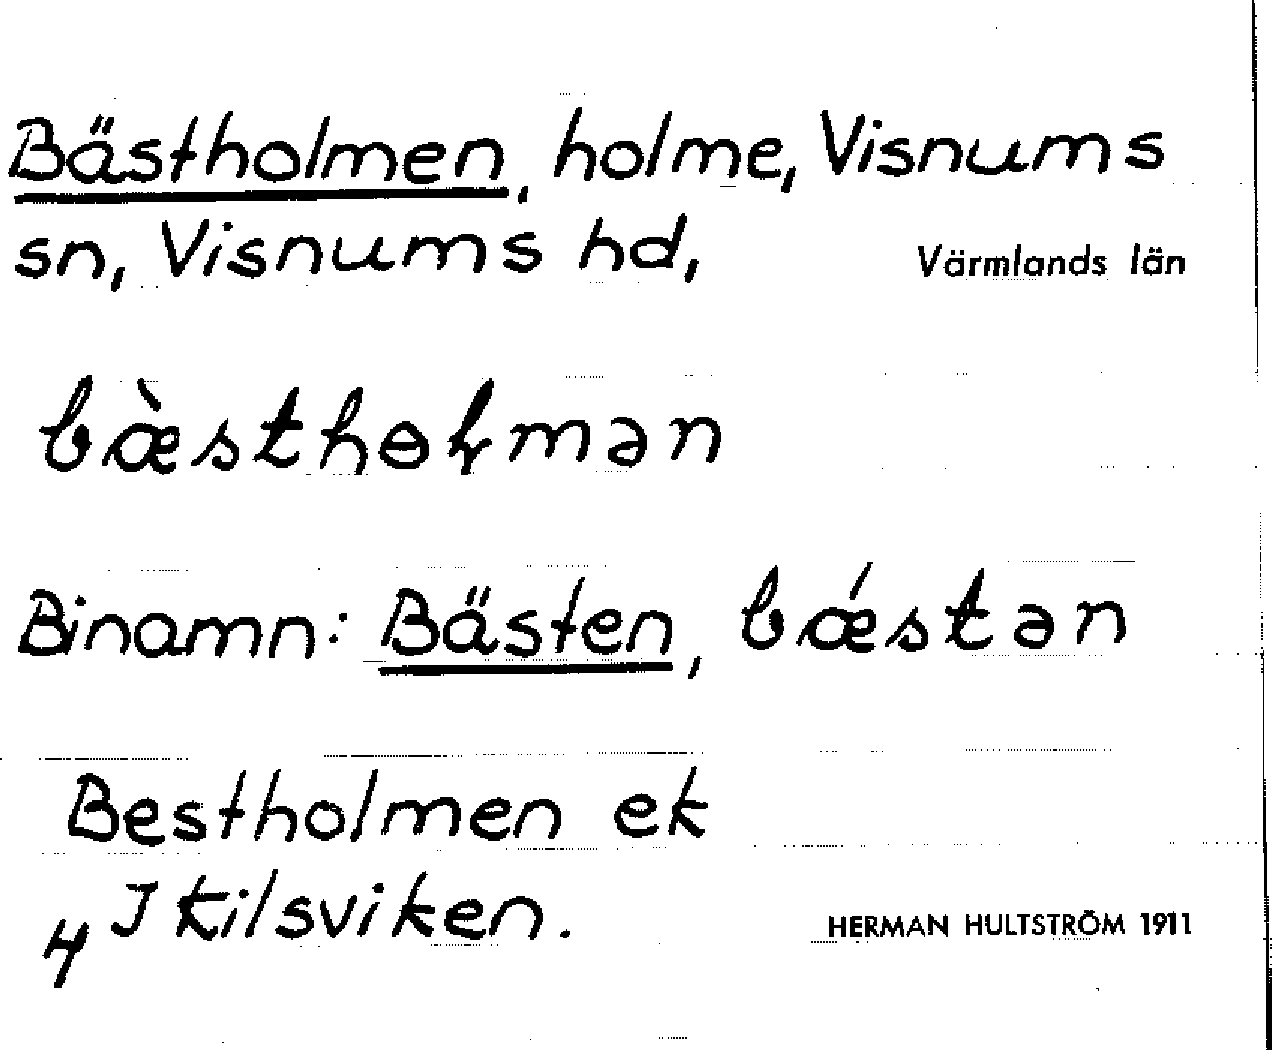 Bästholmen, holme, Visnums
sn, Visnums hd, Värmlands län
bæ̀sthɵɫmən
Binamn: Bästen, bǽstən
Bestholmen ek
I Kilsviken.
HERMAN HULTSTRÖM 1911